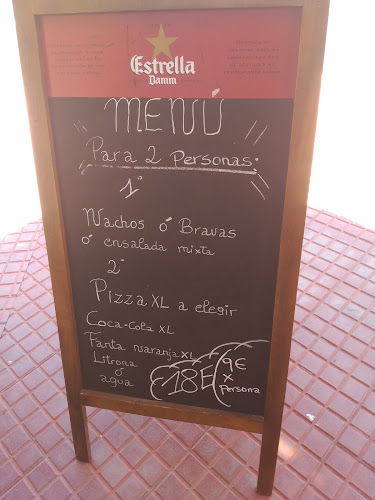 Estrella
Damm
MENÚ
Para 2 Personas.
1º
Nachos ó Bravas
ó ensalada mixta
2º
Pizza XL a elegir
Coca-Cola XL
Fanta naranja XL
Litrona
ó
agua
18€
9€
x
Persona